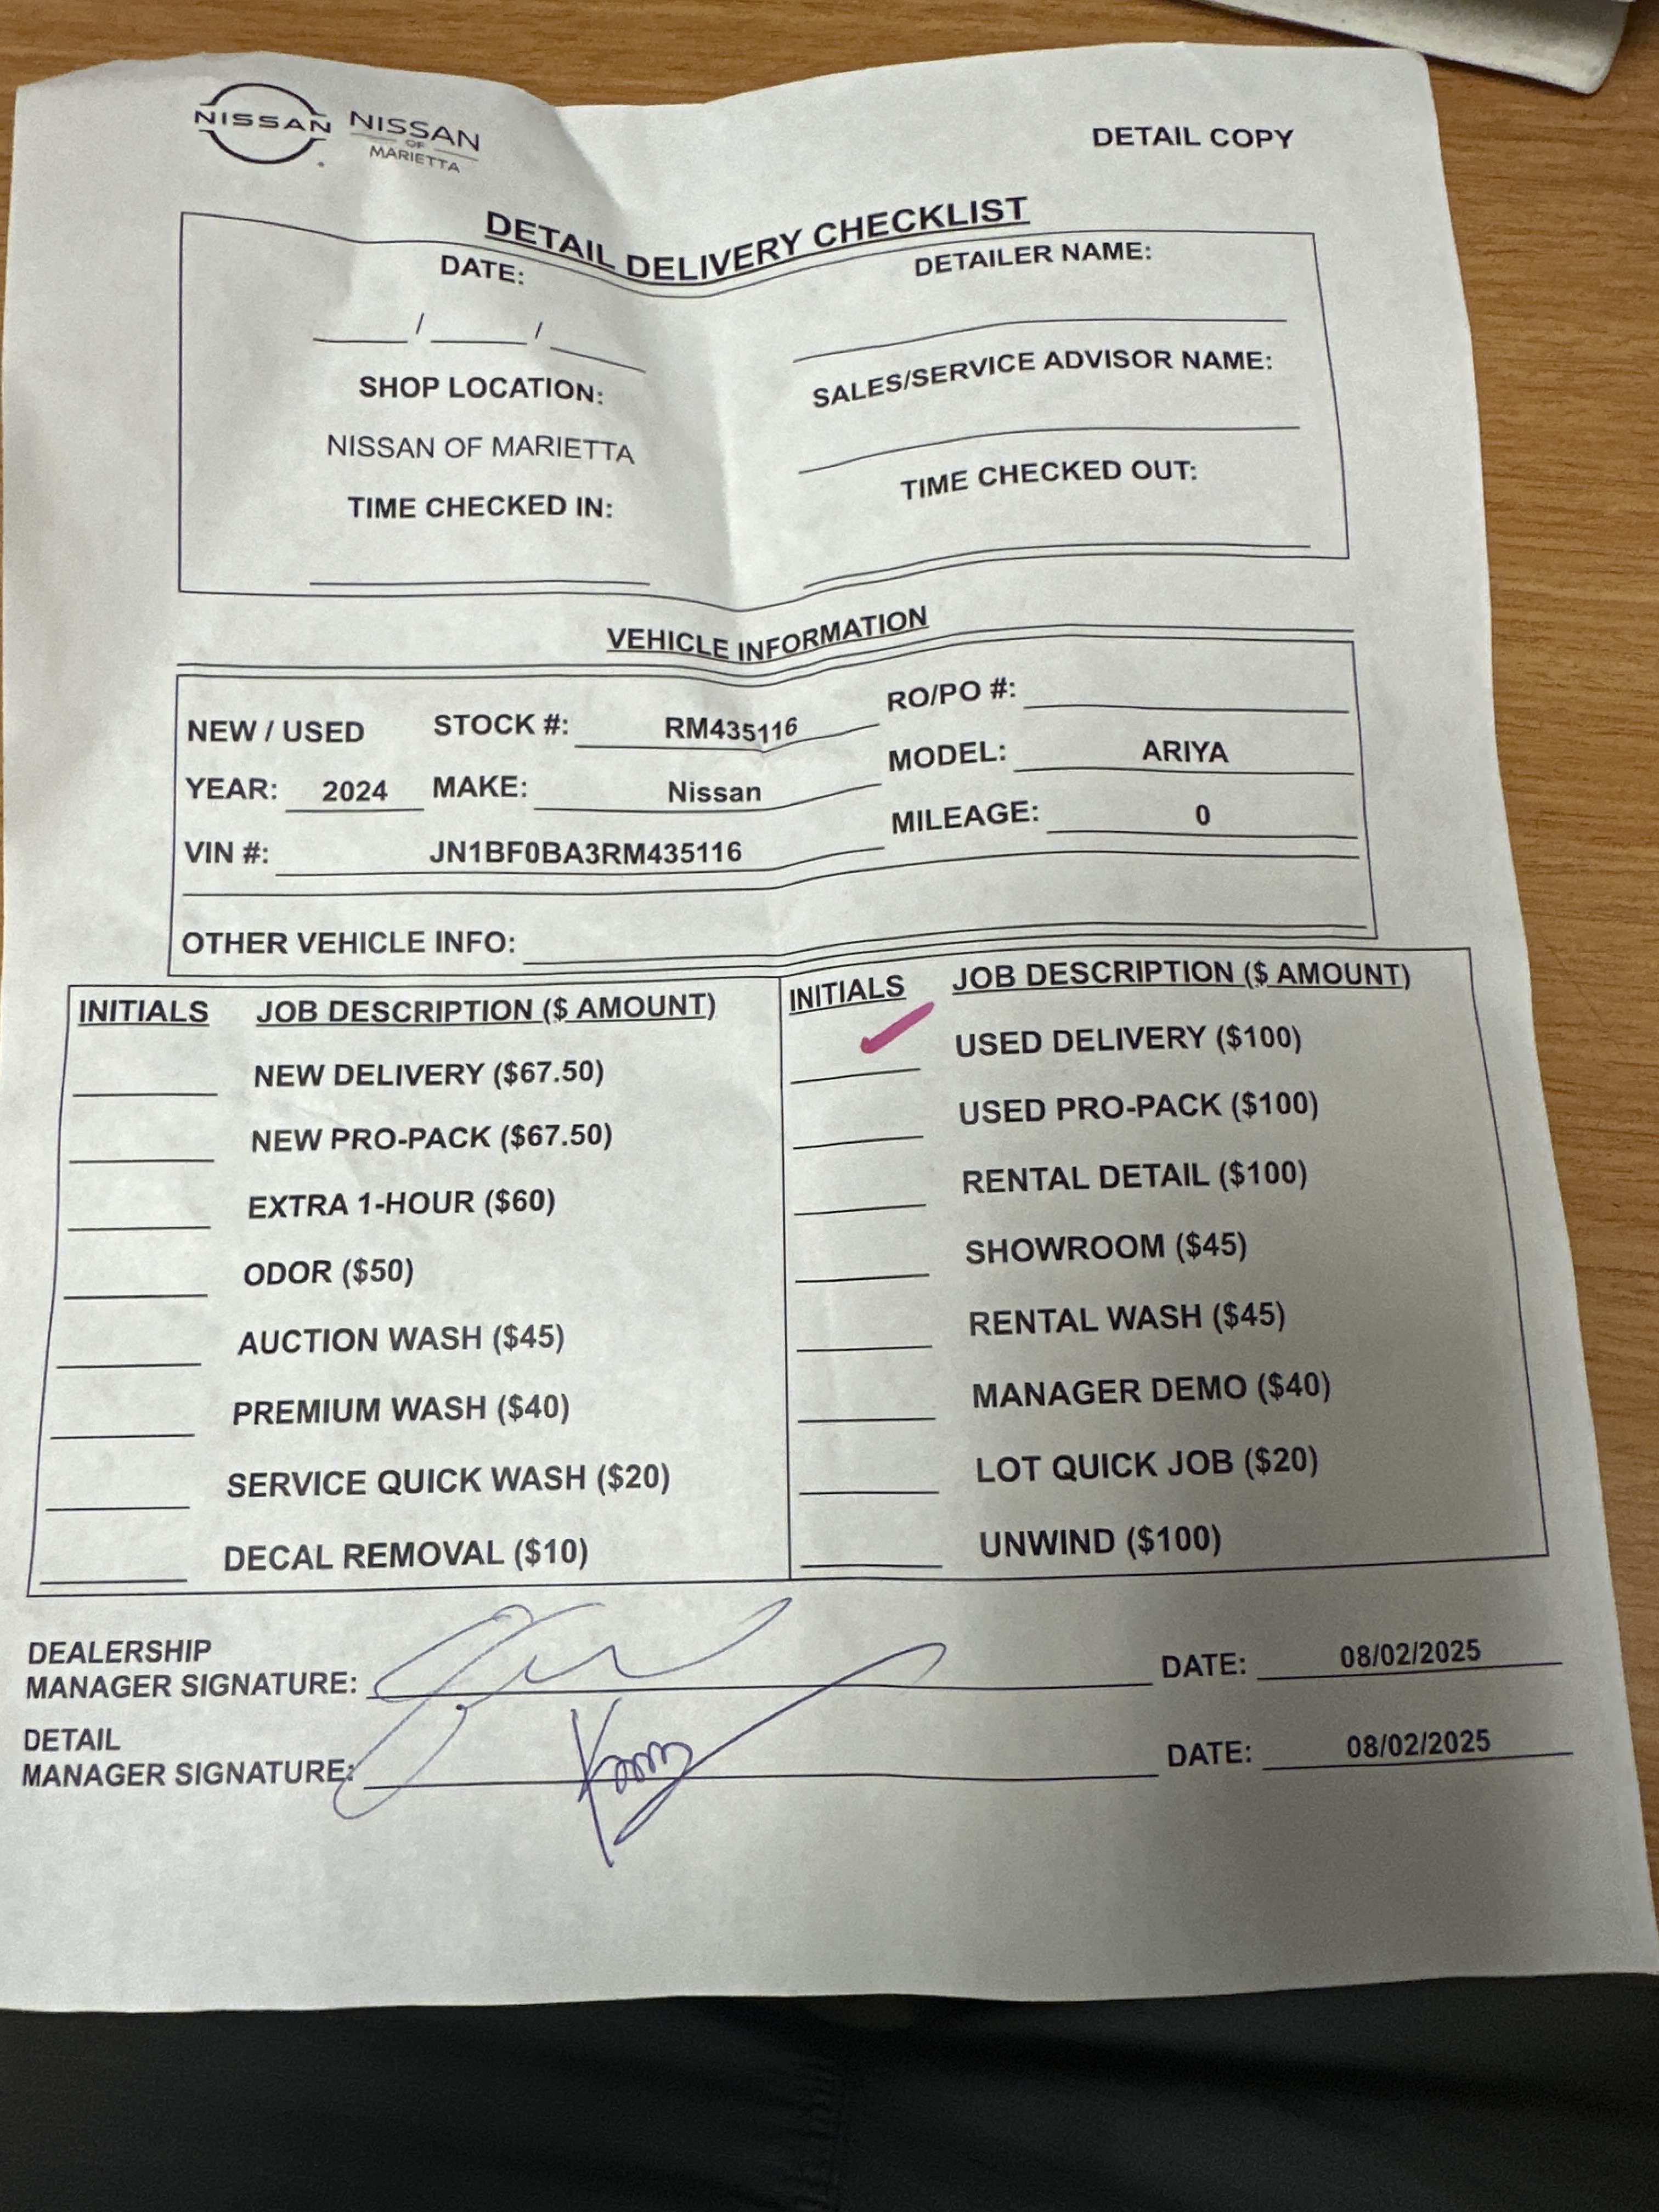 NISSAN NISSAN OF MARIETTA
DETAIL COPY
DETAIL DELIVERY CHECKLIST
DATE:
DETAILER NAME:
/ /
SHOP LOCATION:
SALES/SERVICE ADVISOR NAME:
NISSAN OF MARIETTA
TIME CHECKED IN:
TIME CHECKED OUT:
VEHICLE INFORMATION
NEW / USED STOCK #: RM435116 RO/PO #:
YEAR: 2024 MAKE: Nissan MODEL: ARIYA
VIN #: JN1BF0BA3RM435116 MILEAGE: 0
OTHER VEHICLE INFO:
INITIALS JOB DESCRIPTION ($ AMOUNT)
NEW DELIVERY ($67.50)
NEW PRO-PACK ($67.50)
EXTRA 1-HOUR ($60)
ODOR ($50)
AUCTION WASH ($45)
PREMIUM WASH ($40)
SERVICE QUICK WASH ($20)
DECAL REMOVAL ($10)
INITIALS JOB DESCRIPTION ($ AMOUNT)
USED DELIVERY ($100)
USED PRO-PACK ($100)
RENTAL DETAIL ($100)
SHOWROOM ($45)
RENTAL WASH ($45)
MANAGER DEMO ($40)
LOT QUICK JOB ($20)
UNWIND ($100)
DEALERSHIP
MANAGER SIGNATURE: DATE: 08/02/2025
DETAIL
MANAGER SIGNATURE: DATE: 08/02/2025